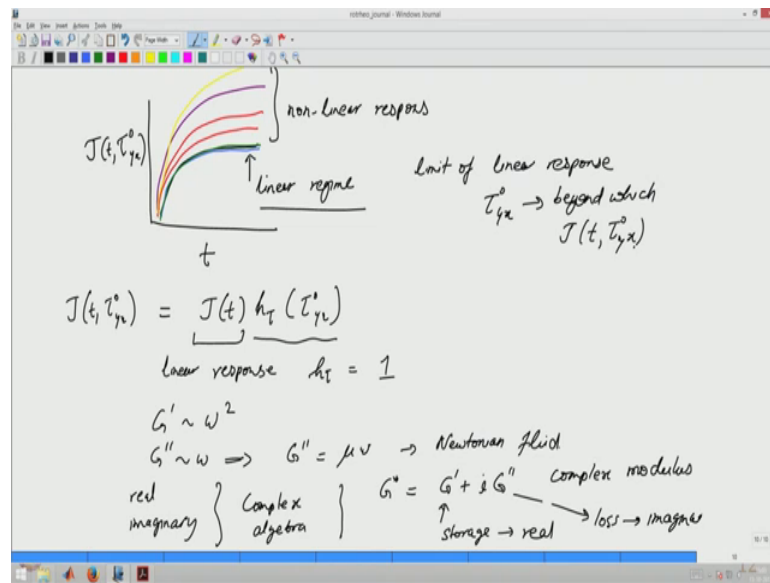 rotrheo_journal - Windows Journal
File Edit View Insert Actions Tools Help
Page Width
B I
J(t, τ°yx)
non-linear respons
linear regime
t
limit of linear response
τ°yx → beyond which
J(t, τ°yx)
J(t, τ°yx) = J(t) hτ (τ°yx)
linear response hτ = 1
G' ~ ω²
G'' ~ ω ⇒ G'' = μν → Newtonian fluid
real
imaginary } Complex algebra } G* = G' + i G'' complex modulus
storage → real
loss → imaginar
10 / 10